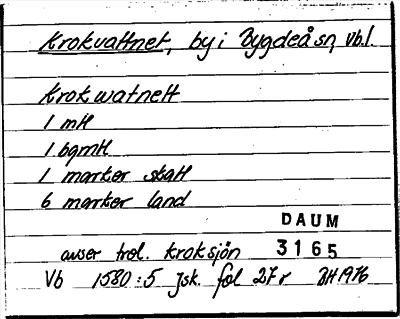 Krokvattnet, by i Bygdeå sn, Vb.l.
Krokwatnett
1 mtl
1 bgmtl
1 marker skatt
6 marker land
DAUM
avser trol. Kroksjön 3165
Vb 1580:5 Jsk. fol 27r BH 1976